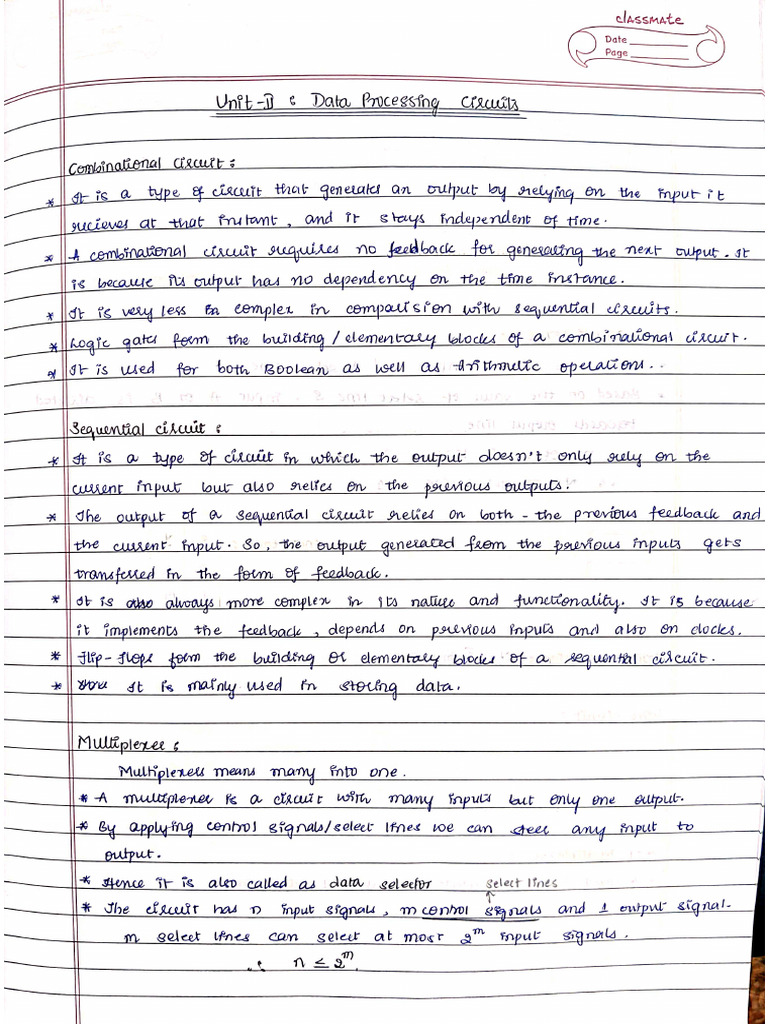 classmate
Date
Page
Unit-II : Data Processing Circuits
Combinational Circuit :
* It is a type of circuit that generates an output by relying on the input it
recieves at that instant, and it stays independent of time.
* A combinational circuit requires no feedback for generating the next output. It
is because its output has no dependency on the time instance.
* It is very less in complex in comparision with sequential circuits.
* Logic gates form the building/elementary blocks of a combinational circuit.
* It is used for both Boolean as well as Arithmetic operations..
Sequential circuit :
* It is a type of circuit in which the output doesn't only rely on the
current input but also relies on the previous outputs.
* The output of a sequential circuit relies on both - the previous feedback and
the current input. So, the output generated from the previous inputs gets
transferred in the form of feedback.
* It is also always more complex in its nature and functionality. It is because
it implements the feedback, depends on previous inputs and also on clocks.
* Flip-flops form the building or elementary blocks of a sequential circuit.
* It is mainly used in storing data.
Multiplexer :
Multiplexers means many into one.
* A multiplexer is a circuit with many inputs but only one output.
* By applying control signals/select lines we can steer any input to
output.
* Hence it is also called as data selector
select lines
* The circuit has n input signals, m control signals and 1 output signal.
m select lines can select at most 2^m input signals.
∴ n ≤ 2^m